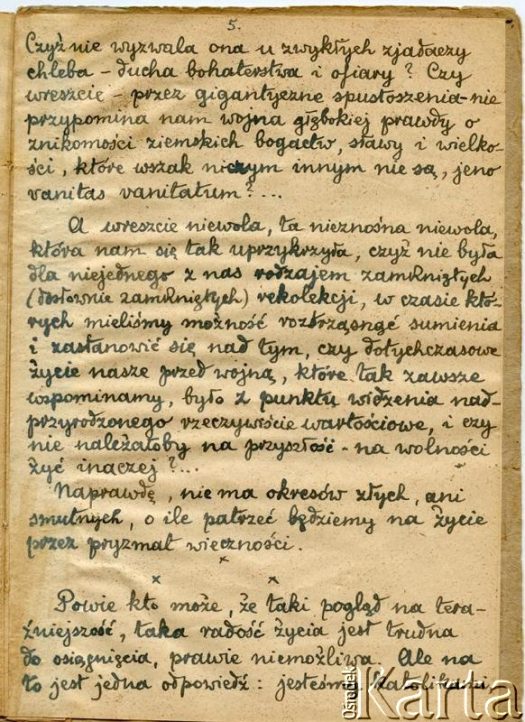 5.
Czyż nie wyzwala ona u zwykłych zjadaczy
chleba - ducha bohaterstwa i ofiary? Czy
wreszcie - przez gigantyczne spustoszenia - nie
przypomina nam wojna głębokiej prawdy o
znikomości ziemskich bogactw, sławy i wielko-
ści, które wszak niczym innym nie są, jeno
vanitas vanitatum?...
A wreszcie niewola, ta nieznośna niewola,
która nam się tak uprzykrzyła, czyż nie była
dla niejednego z nas rodzajem zamkniętych
(dosłownie zamkniętych) rekolekcji, w czasie któ-
rych mieliśmy możność roztrząsnąć sumienia
i zastanowić się nad tym, czy dotychczasowe
życie nasze przed wojną, które tak zawsze
wspominamy, było z punktu widzenia nad-
przyrodzonego rzeczywiście wartościowe, i czy
nie należałoby na przyszłość - na wolności
żyć inaczej?...
Naprawdę, nie ma okresów złych, ani
smutnych, o ile patrzeć będziemy na życie
przez pryzmat wieczności.
x x x
Powie kto może, że taki pogląd na tera-
źniejszość, taka radość życia jest trudna
do osiągnięcia, prawie niemożliwa. Ale na
to jest jedna odpowiedź: jesteśmy katolikami
ośrodek Karta